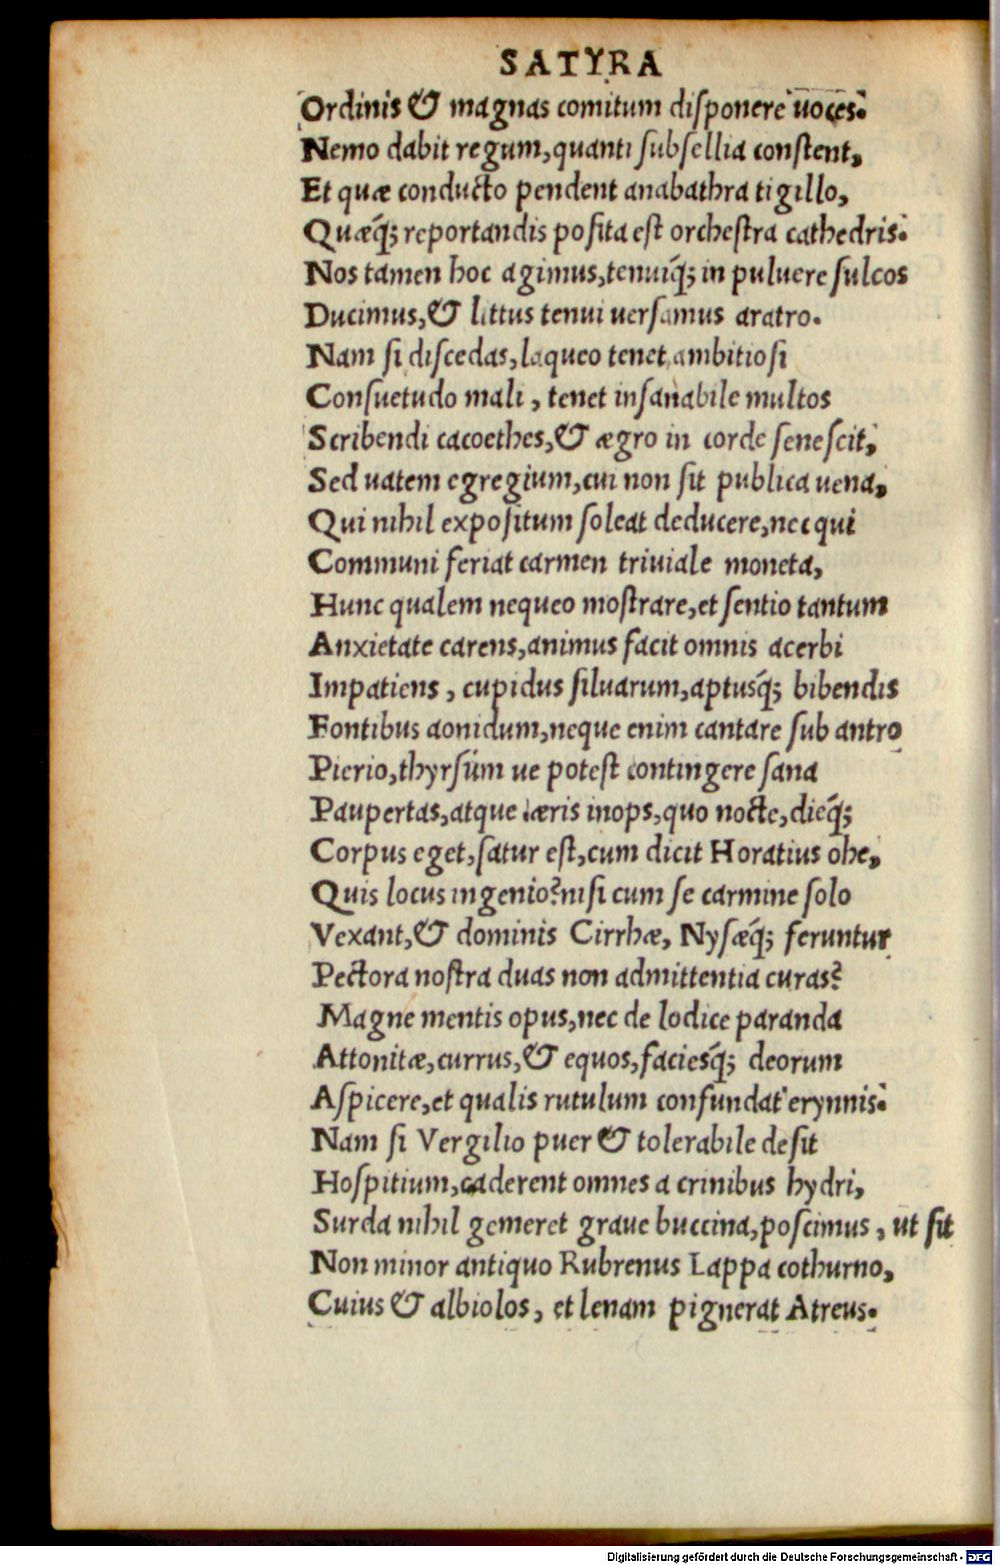 SATYRA
Ordinis & magnas comitum disponere uoces.
Nemo dabit regum, quanti subsellia constent,
Et quæ conducto pendent anabathra tigillo,
Quæq́; reportandis posita est orchestra cathedris.
Nos tamen hoc agimus, tenuiq́; in puluere sulcos
Ducimus, & littus tenui uersamus aratro.
Nam si discedas, laqueo tenet ambitiosi
Consuetudo mali, tenet insanabile multos
Scribendi cacoethes, & ægro in corde senescit,
Sed uatem egregium, cui non sit publica uena,
Qui nihil expositum soleat deducere, nec qui
Communi feriat carmen triuiale moneta,
Hunc qualem nequeo mostrare, et sentio tantum
Anxietate carens, animus facit omnis acerbi
Impatiens, cupidus siluarum, aptusq́; bibendis
Fontibus aonidum, neque enim cantare sub antro
Pierio, thyrsúm ue potest contingere sana
Paupertas, atque æris inops, quo nocte, dieq́;
Corpus eget, satur est, cum dicit Horatius ohe,
Quis locus ingenio? nisi cum se carmine solo
Vexant, & dominis Cirrhæ, Nysæq́; feruntur
Pectora nostra duas non admittentia curas?
Magne mentis opus, nec de lodice paranda
Attonitæ, currus, & equos, faciesq́; deorum
Aspicere, et qualis rutulum confundat erynnis.
Nam si Vergilio puer & tolerabile desit
Hospitium, caderent omnes a crinibus hydri,
Surda nihil gemeret graue buccina, poscimus, ut sit
Non minor antiquo Rubrenus Lappa cothurno,
Cuius & albiolos, et lenam pignerat Atreus.
Digitalisierung gefördert durch die Deutsche Forschungsgemeinschaft - DFG